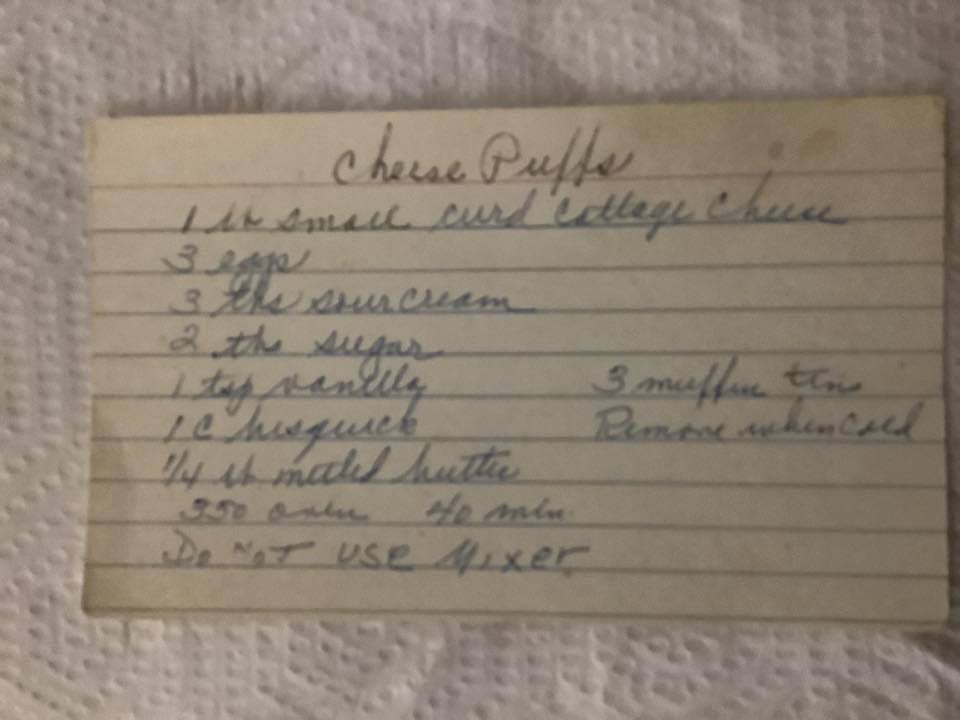 Cheese Puffs
1 lb small curd cottage cheese
3 eggs
3 tbs sour cream
2 tbs sugar
1 tsp vanilla
3 muffin tins
1 C bisquick
Remove when cold
1/4 lb melted butter
350 oven 40 min.
Do NOT USE Mixer